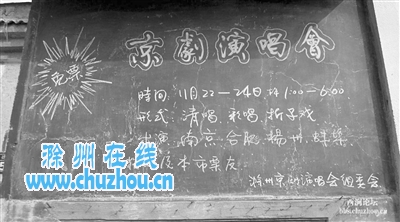 京劇演唱會
免票
時间:11月22—24日下午1:00—5:00
形式:清唱、彩唱、折子戏
南京、合肥、揚州、蚌埠
及本市票友
滁州京剧演唱会组委会
滁州在线
www.chuzhou.cn
西涧论坛
bbs.chuzhou.cn